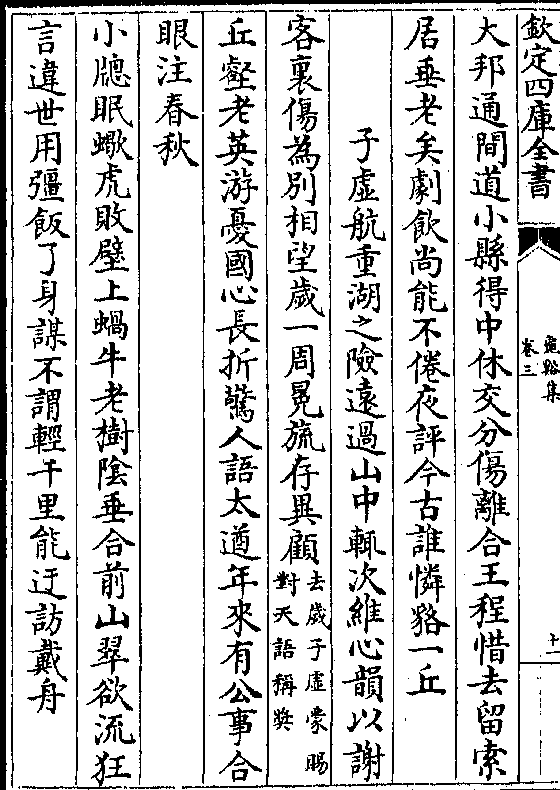 欽定四庫全書
卷三
大邦通間道小縣得中休交分傷離合王程惜去留索
居垂老矣劇飲尚能不倦夜評今古誰憐貉一丘
子虛航重湖之險遠過山中輒次維心韻以謝
客裏傷為別相望歲一周冕旒存異顧去歲子虛蒙賜對天語稱奬
丘壑老英游憂國心長折驚人語太遒年來有公事合
眼注春秋
小牕眠蠍虎敗壁上蝸牛老樹陰垂合前山翠欲流狂
言違世用彊飯了身謀不謂輕千里能迂訪戴舟